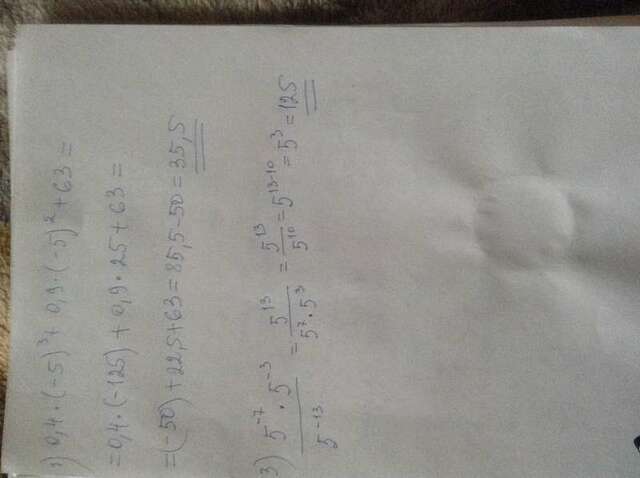 1) 0,4·(-5)³+ 0,9·(-5)²+63=
=0,4·(-125)+0,9·25+63=
=(-50)+22,5+63=85,5-50=35,5
3) 5⁻⁷·5⁻³/5⁻¹³=5¹³/5⁷·5³=5¹³/5¹⁰=5¹³⁻¹⁰=5³=125